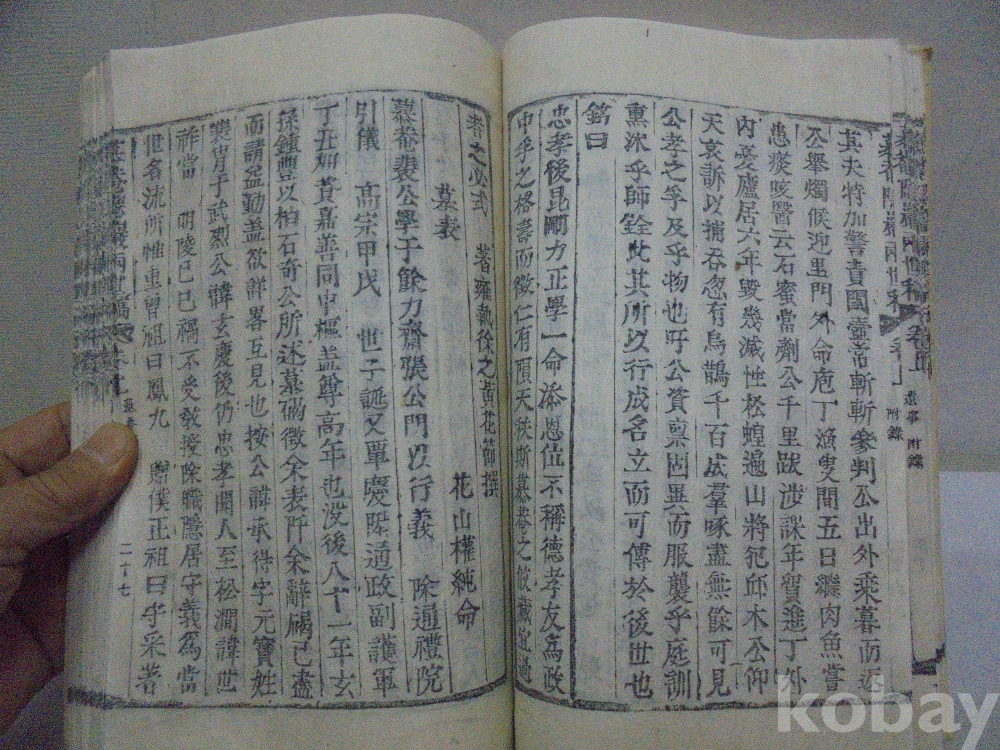 其夫特加警責閨壼常斬斬參判公出外乘暮而返
公擧燭候迎里門外命庖丁漁叟間五日繼肉魚嘗
患痰咳醫云石蜜當劑公千里跋涉課年貿進丁外
內憂廬居六年毀幾滅性松蝗遍山將犯邱木公仰
天哀訴以捕呑忽有烏鵲千百成羣啄盡無餘可見
公孝之孚及乎物也吁公資稟固異而服襲乎庭訓
熏沐乎師銓此其所以行成名立而可傳於後世也
銘曰
忠孝後昆剛力正學一命添恩位不稱德孝友爲政
中乎之格壽而徵仁有隕天秩斯慕菴之攸藏宜過
者之必式 著雍執徐之黃花節撰
花山權純命
墓表
慕菴裴公學于餘力齋張公門以行義 除通禮院
引儀 高宗甲戌 世子誕又覃慶陞通政副護軍
丁丑如賁嘉善同中樞盖尊高年也沒後八十一年玄
孫鍾豐以柏石奇公所述墓碣徵余表阡余辭碣已盡
而請益勤盖欲詳畧互見也按公諱承待字元寶姓
裴肯于武烈公諱玄慶後仍忠孝聞人至松澗諱世
祚當 明陵己巳禍不受敎授除職隱居守義爲當
世名流所推重曾祖曰鳳九 贈僕正祖曰守采著
附錄
二十七
kobay